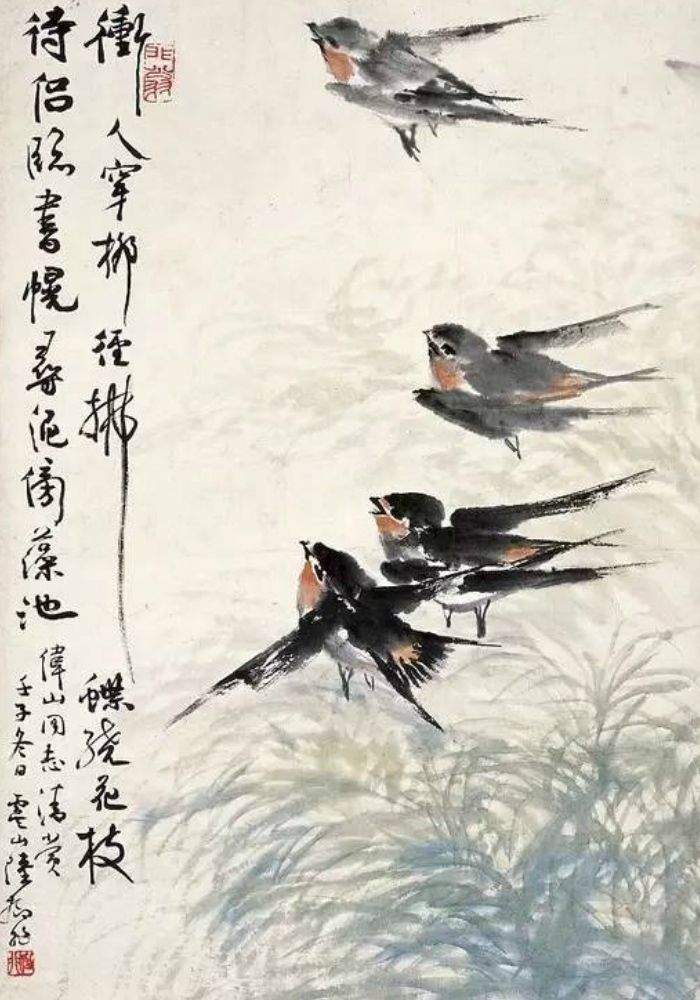 衝人穿柳徑拂蝶繞花枝
待侣臨書幌尋泥傍藻池
偉山同志清賞
壬子冬日虞山陸抑非